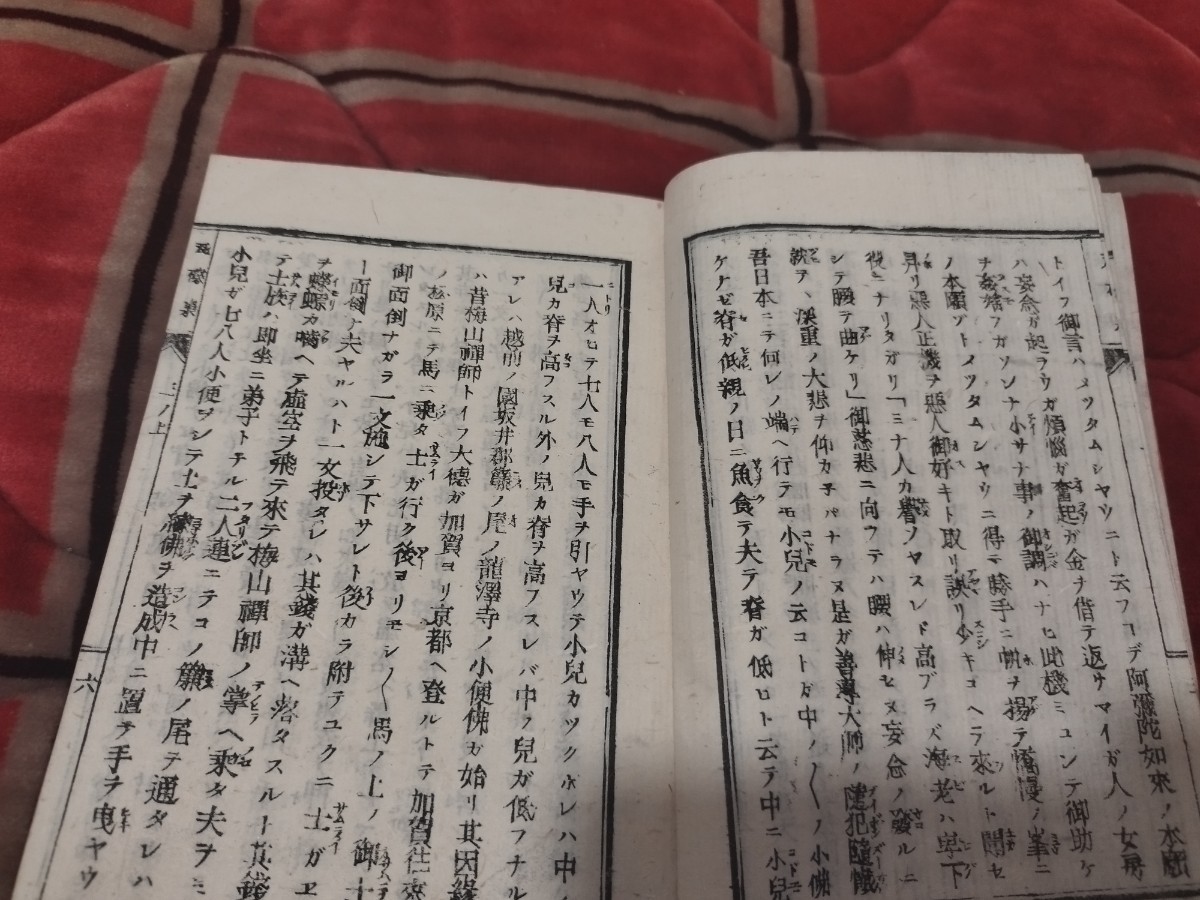 トイフ御言ハメツタムシヤウニト云フヿデ阿彌陀如來ノ本願
ハ妄念ガ起ラウガ煩惱ガ奮起ガ金ナ借テ返サマイガ人ノ女房
ヲ ガソンナ小サナ事ノ御調ハナヒ此機ミユンテ御助ケ
ノ本願ゾトメツタムシヤウニ得手勝手ニ帆ヲ揚テ憍慢ノ峯ニ
昇リ惡人正機ヲ惡人御好キト取リ誤リ少キコヘラ來ルト聞セ
後ニナリタガリ「ミナ人カ ノヤスレド高ブラバ海老ハ卑下
シテ腰テ曲ケリ」御慈悲ニ向ウテハ腰ハ伸ヒヌ妄念ノ發ルニ
就テヲ、深重ノ大悲ヲ仰カ子バナラヌ是ガ善導大師ノ隨犯隨懺
吾日本ニテ何レノ端ヘ行テモ小兒ノ云コトガ中ノ〱ノ小佛
ケナゼ脊ガ低親ノ日ニ魚食テ夫テ脊ガ低ロト云テ中ニ小兒
一人オヒテ七人モ八人モ手ヲ引ヤウテ小兒カツクボレハ中ノ
兒カ脊ヲ高フスル外ノ兒カ脊ヲ高フスレバ中ノ兒ガ低フナル
アレハ越前ノ國坂井郡簾ノ尾ノ龍澤寺ノ小便佛ガ始リ其因緣
ハ昔梅山禪師トイフ大德ガ加賀ヨリ京都ヘ登ルトテ加賀往來
ノ 原ニテ馬ニ乘タ士ガ行ク後ヨリモシ〱馬ノ上ノ御士
御面倒ナガラ一文施シテ下サレト後カラ附テユクニ士ガヱ
ー面倒ナ夫ヤルハト一文投タレハ其錢ガ溝ヘ落タスルト其錢
ヲ蠑螈カ嘴ヘテ虛空ヲ飛テ來テ梅山禪師ノ掌ヘ乘タ夫ヲミ
テ士族ハ即坐ニ弟子トナル二人連ニテコノ簾ノ尾テ通タレハ
小兒ガ七八人小便ヲシテ土ヲ 佛ヲ造成中ニ置テ手ヲ曳ヤウ
三ノ上
六